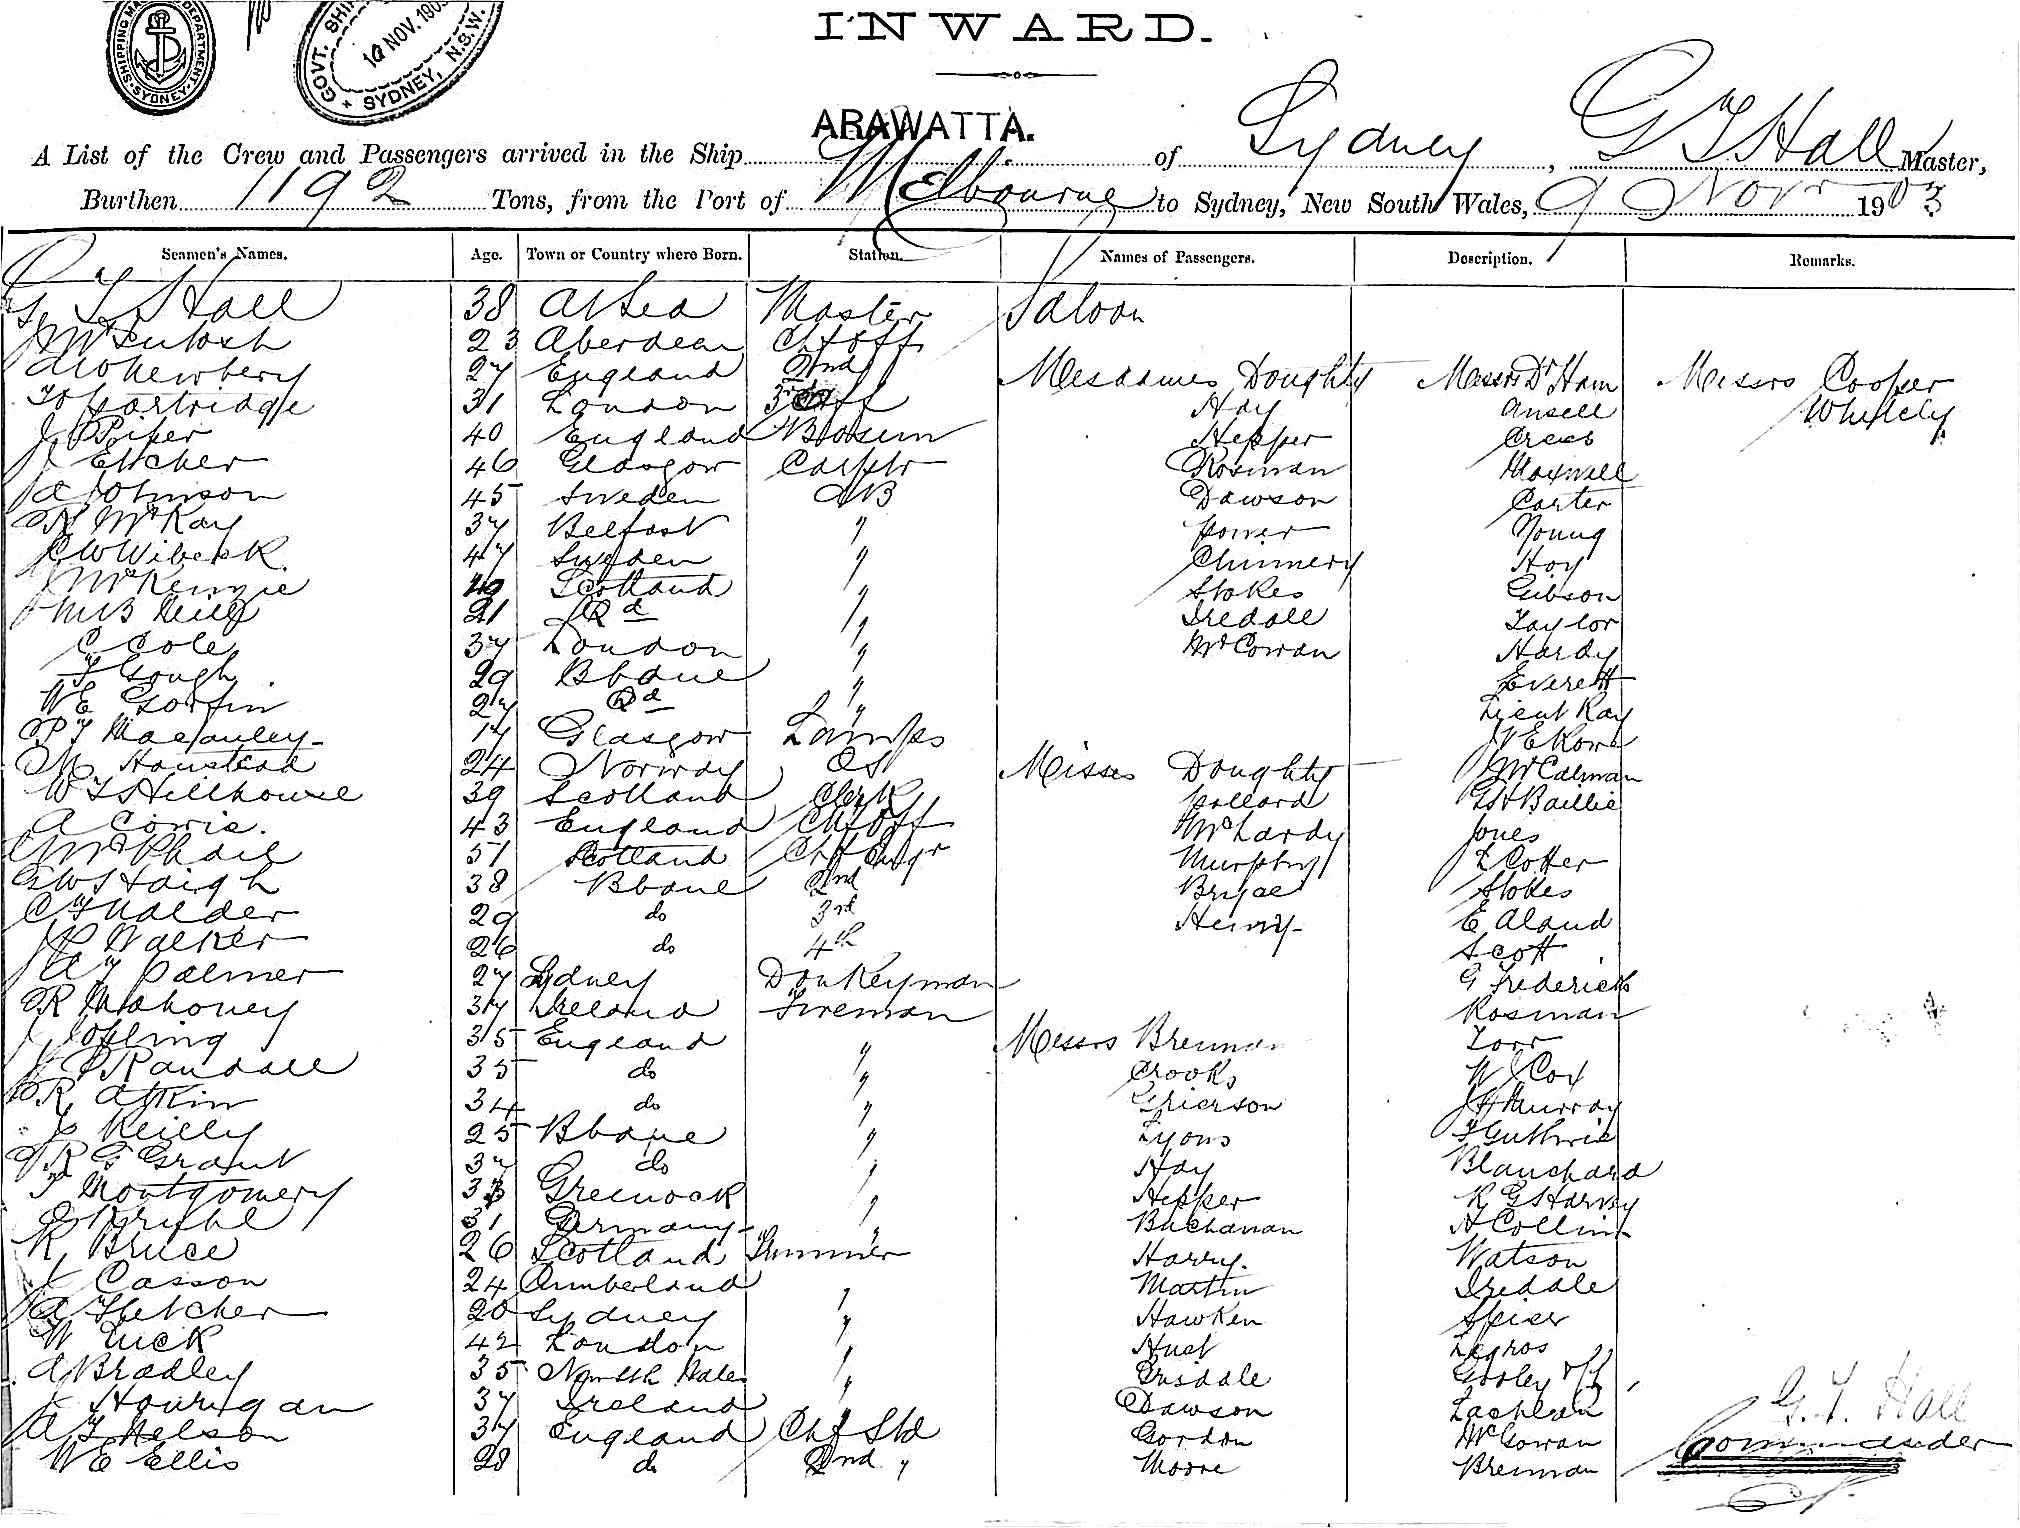 SHIPPING MA DEPARTMENT SYDNEY
GOVT. SHI 10 NOV. 190 SYDNEY, N.S.W.
INWARD.
ARAWATTA.
A List of the Crew and Passengers arrived in the Ship of Sydney, G T Hall Master,
Burthen 1192 Tons, from the Port of Melbourne to Sydney, New South Wales, 9 Novr 1903
Seamen's Names. Age. Town or Country where Born. Station. Names of Passengers. Description. Remarks.
G T Hall 38 At Sea Master Saloon
J McIntosh 23 Aberdeen Chf Off
A W Newbery 27 England 2nd Mesdames Doughty Messrs Dr Ham Messrs Cooper
Hartridge 31 London 3rd Off Hay Ansell Whitely
J Piper 40 England Bosun Hepper Crees
J Etcher 46 Glasgow Carptr Rosman Maxwell
A Johnson 45 Sweden AB Dawson Carter
R McKay 37 Belfast " Power Young
C W Wibeck 47 Sweden " Chinnery Hoy
J McKenzie 40 Scotland " Stokes Gibson
M B Neill 21 Do " Iredale Taylor
C Cole 37 London " McCowan Hardy
T Gough 29 Bbane " Everett
W E Gorfin 27 Do " Lieut Ray
P T Macauley 17 Glasgow Lamps J E Rowe
M Hanstead 24 Norway OS Misses Doughty J McCalman
W T S Hillhouse 39 Scotland Clerk Pollard G H Baillie
A Cowie. 43 England Chf Off McLardy Jones
J McPhail 51 Scotland Chf Engr Murphy L Cotter
G W S Haigh 38 Bbane 2nd Bryce Stokes
C T Nalder 29 do 3rd Henry E Aland
J P Walker 26 do 4th Scott
A T Palmer 27 Sydney Donkeyman G Frederick
R Mahoney 37 Ireland Fireman Rosman
J Jopling 35 England " Messrs Brennan Torr
J P Randall 35 do " Crooks W J Cox
R Atkin 34 do " Grierson J H Murray
J Reilly 25 Bbane " Lyons T Guthrie
R G Grant 37 do " Hay Blanchard
T Montgomery 33 Greenock " Hepper R G Harvey
31 Germany " Buchanan A Collins
R Bruce 26 Scotland Trimmer Harry. Watson
J Casson 24 Cumberland " Martin Iredale
A Fletcher 20 Sydney " Hawken Spier
W Tuck 42 London " Hust Legros
A Bradley 35 North Wales " Grisdale Gooley
J Hourigan 37 Ireland " Dawson Lachlan G. T. Hall
A T Nelson 37 England Chf Std Gordon McGowan Commander
W E Ellis 28 do 2nd " Moore Brennan